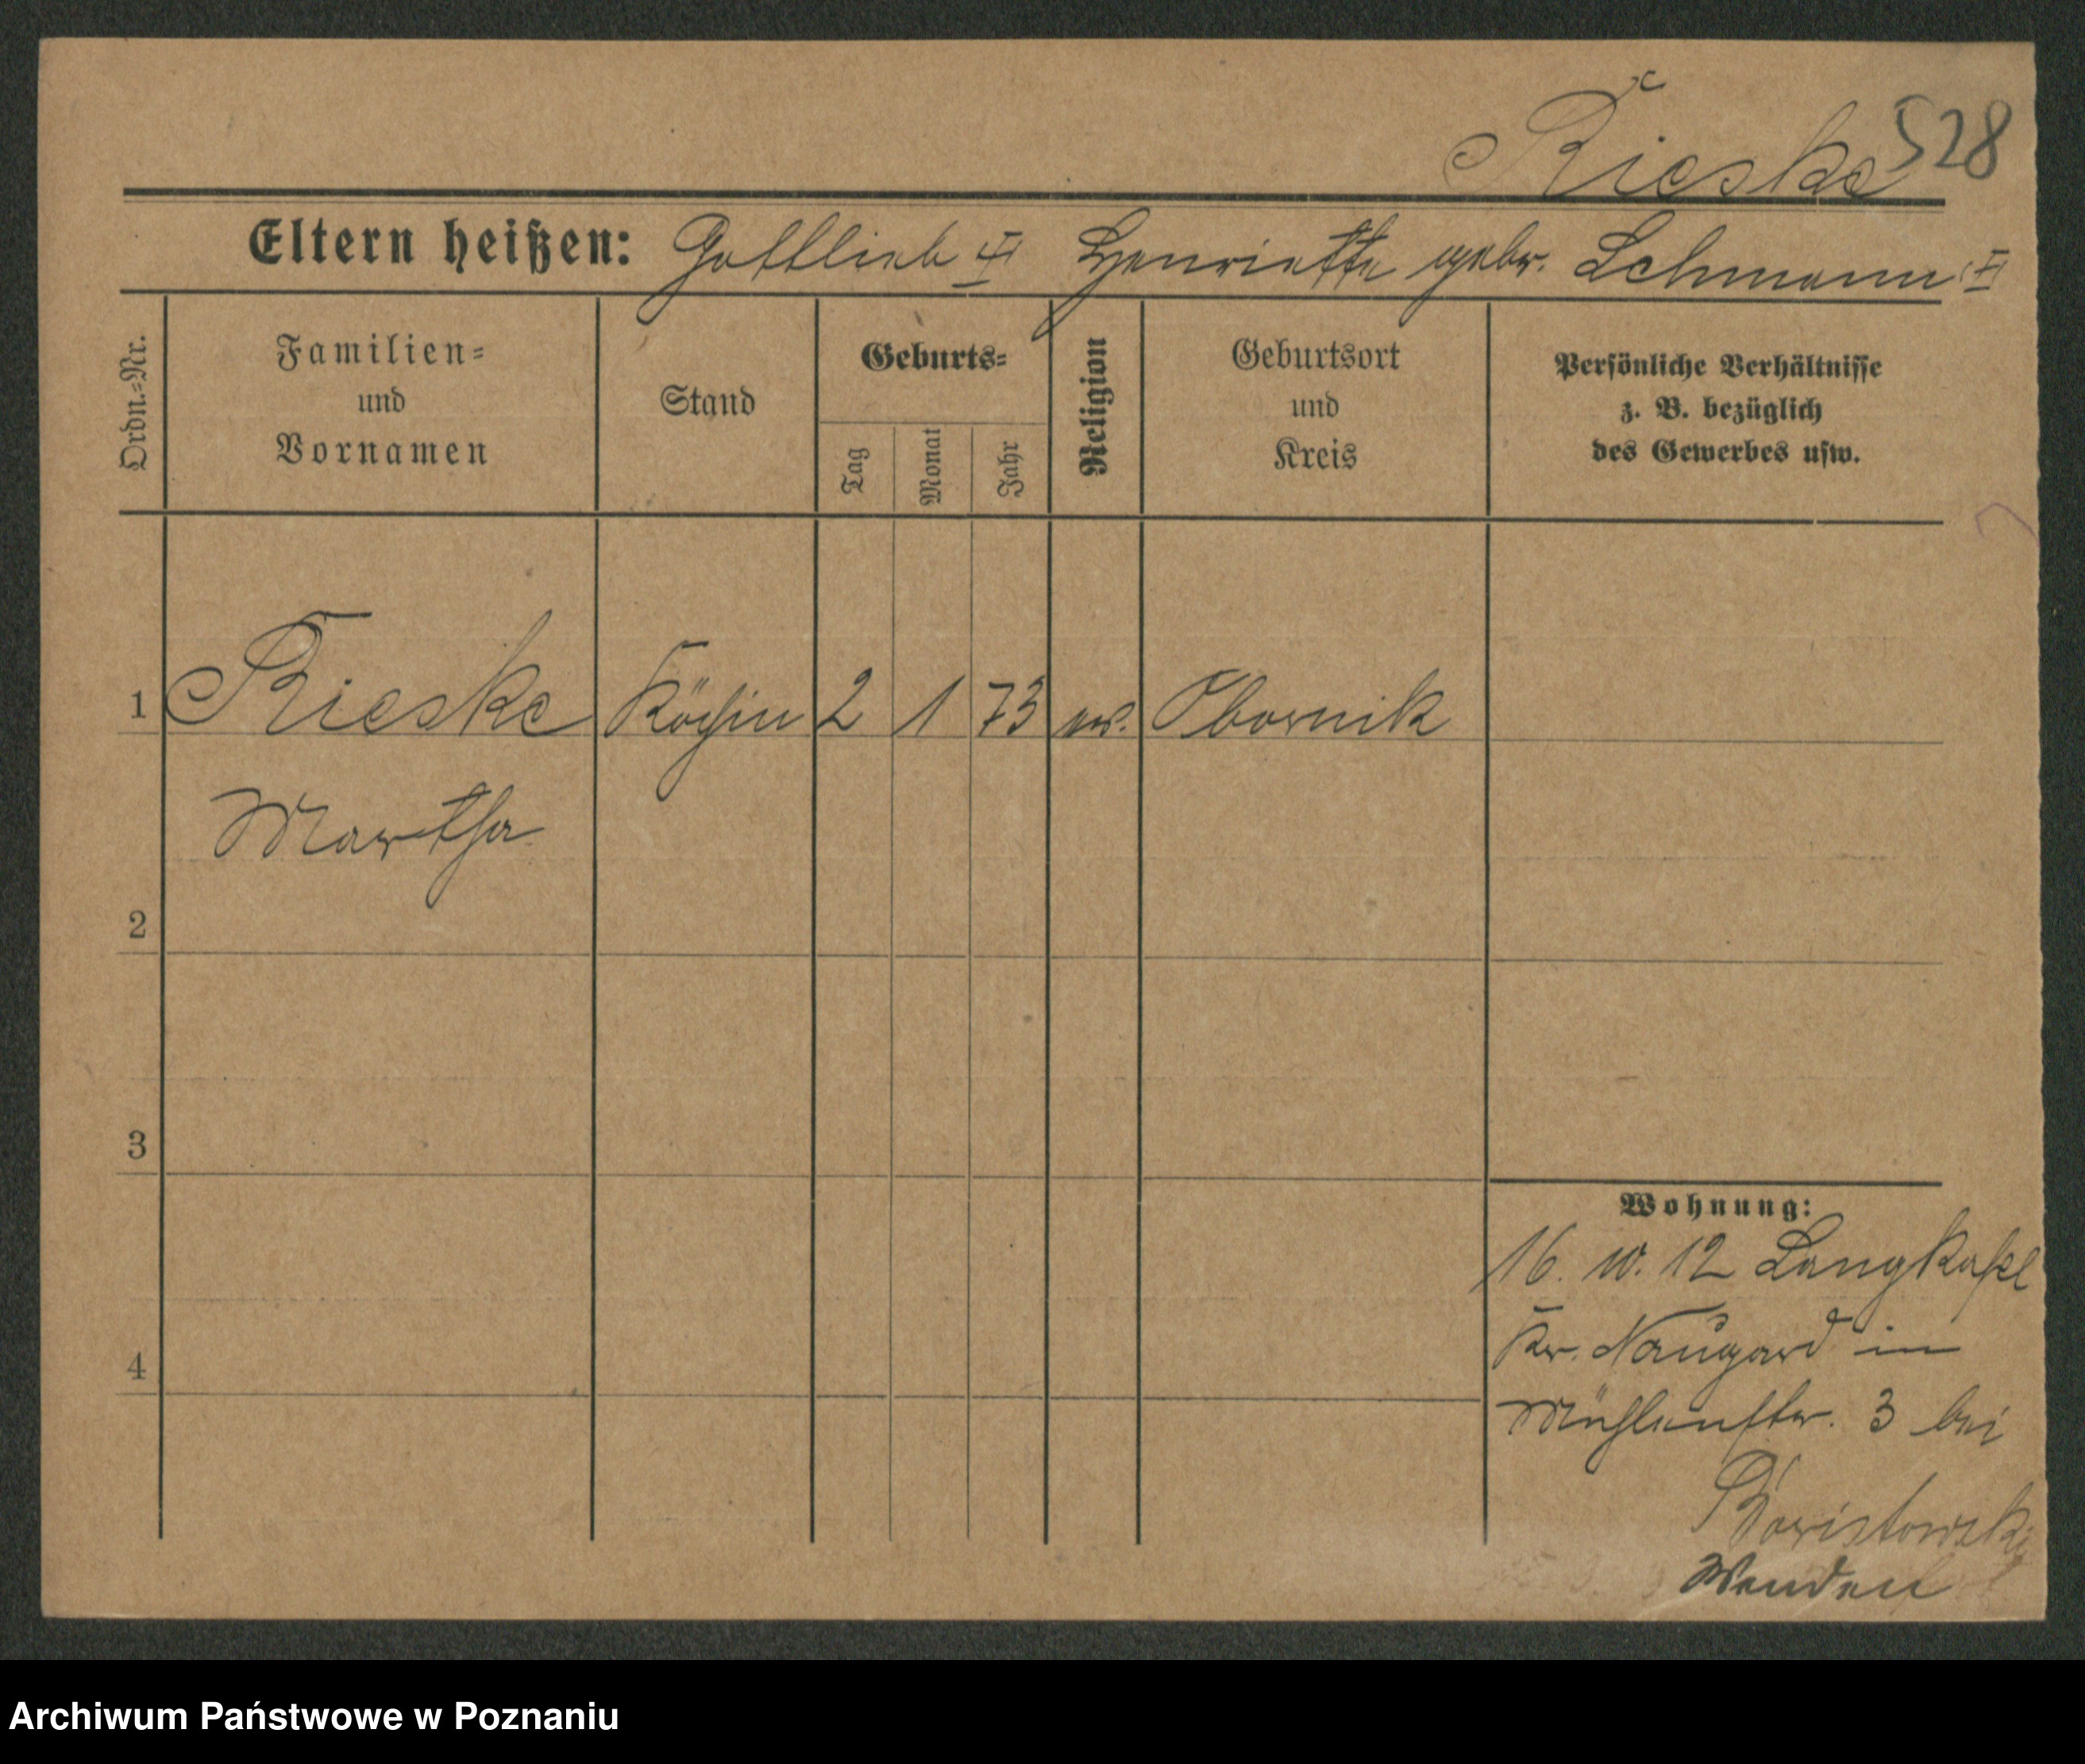 Rieske 528
Eltern heißen: Gottlieb Henriette gebr. Lehmann
Ordn.=Nr.
Familien=
und
Vornamen
Stand
Geburts=
Tag
Monat
Jahr
Religion
Geburtsort
und
Kreis
Persönliche Verhältnisse
z. B. bezüglich
des Gewerbes usw.
1 Rieske Köchin 2 1 73 ev. Obornik
Martha
2
3
4
Wohnung:
16. 10. 12 Langkafel
Kr. Naugard in
Mühlenstr. 3 bei
Wenden
Archiwum Państwowe w Poznaniu